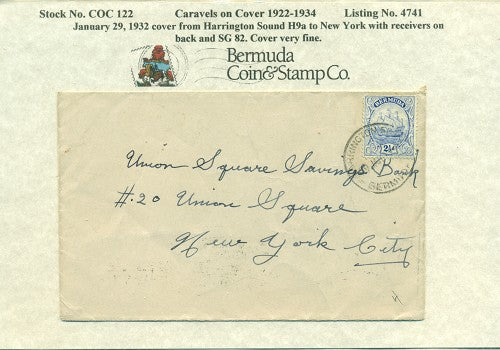 Stock No. COC 122 Caravels on Cover 1922-1934 Listing No. 4741
January 29, 1932 cover from Harrington Sound H9a to New York with receivers on
back and SG 82. Cover very fine.
Bermuda
Coin&Stamp Co.
BERMUDA
2½
Union Square Savings Bank
#20 Union Square
New York City